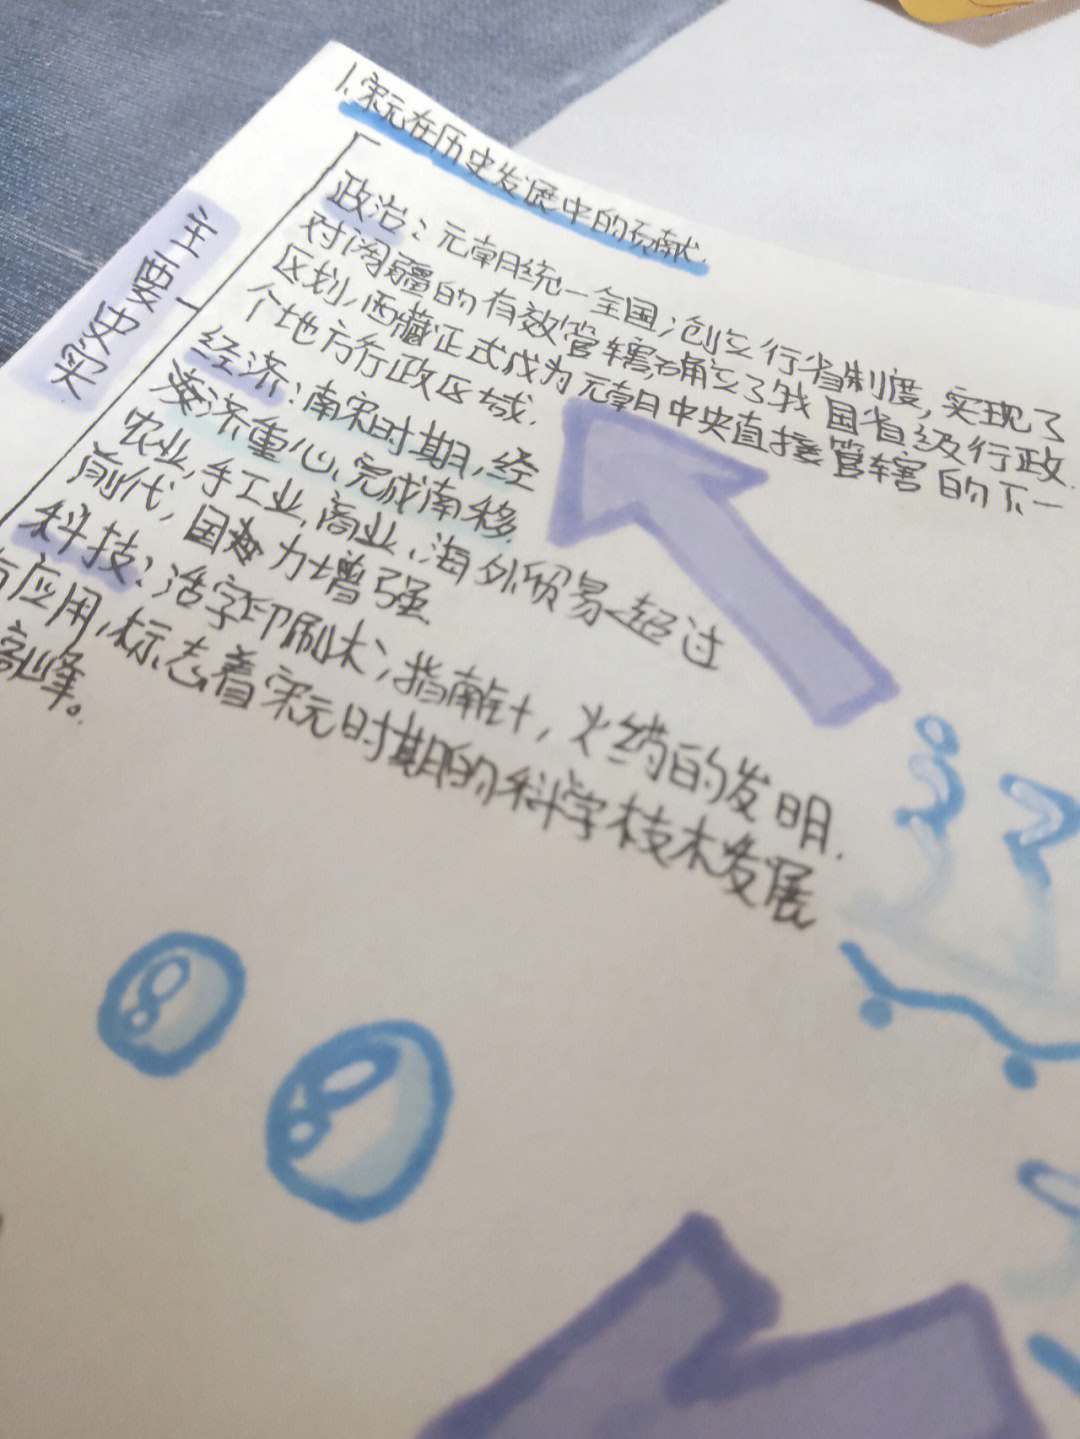 1.宋元在历史发展中的贡献.
主要史实
政治：元朝统一全国；创立行省制度,实现了
对闵疆的有效管辖,确立了我国省级行政.
区划,西藏正式成为元朝中央直接管辖的下一
个地方行政区域.
经济：南宋时期,经
济重心,完成南移.
农业,手工业,商业、海外贸易超过
前代，国力增强
科技：活字印刷术；指南针，火药的发明.
应用,标志着宋元时期的科学技术发展
高峰。